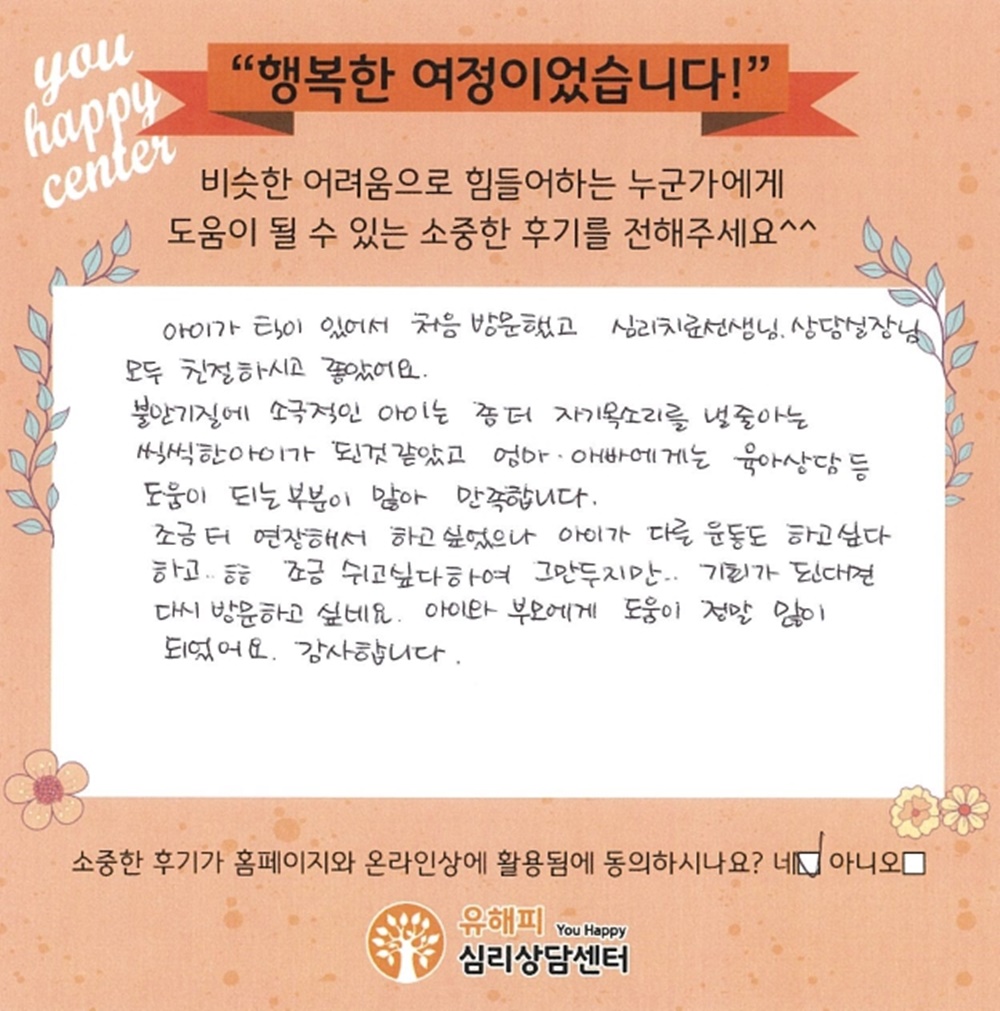 you
happy
center
“행복한 여정이었습니다!”
비슷한 어려움으로 힘들어하는 누군가에게
도움이 될 수 있는 소중한 후기를 전해주세요^^
아이가 틱이 있어서 처음 방문했고 심리치료선생님, 상담실장님
모두 친절하시고 좋았어요.
불안기질에 소극적인 아이는 좀 더 자기목소리를 낼줄아는
씩씩한아이가 된것같았고 엄마·아빠에게는 육아상담 등
도움이 되는 부분이 많아 만족합니다.
조금 더 연장해서 하고 싶었으나 아이가 다른 운동도 하고싶다
하고.. ㅎㅎ 조금 쉬고싶다하여 그만두지만.. 기회가 된다면
다시 방문하고 싶네요. 아이와 부모에게 도움이 정말 많이
되었어요. 감사합니다.
소중한 후기가 홈페이지와 온라인상에 활용됨에 동의하시나요? 네☑ 아니오☐
유해피 You Happy
심리상담센터